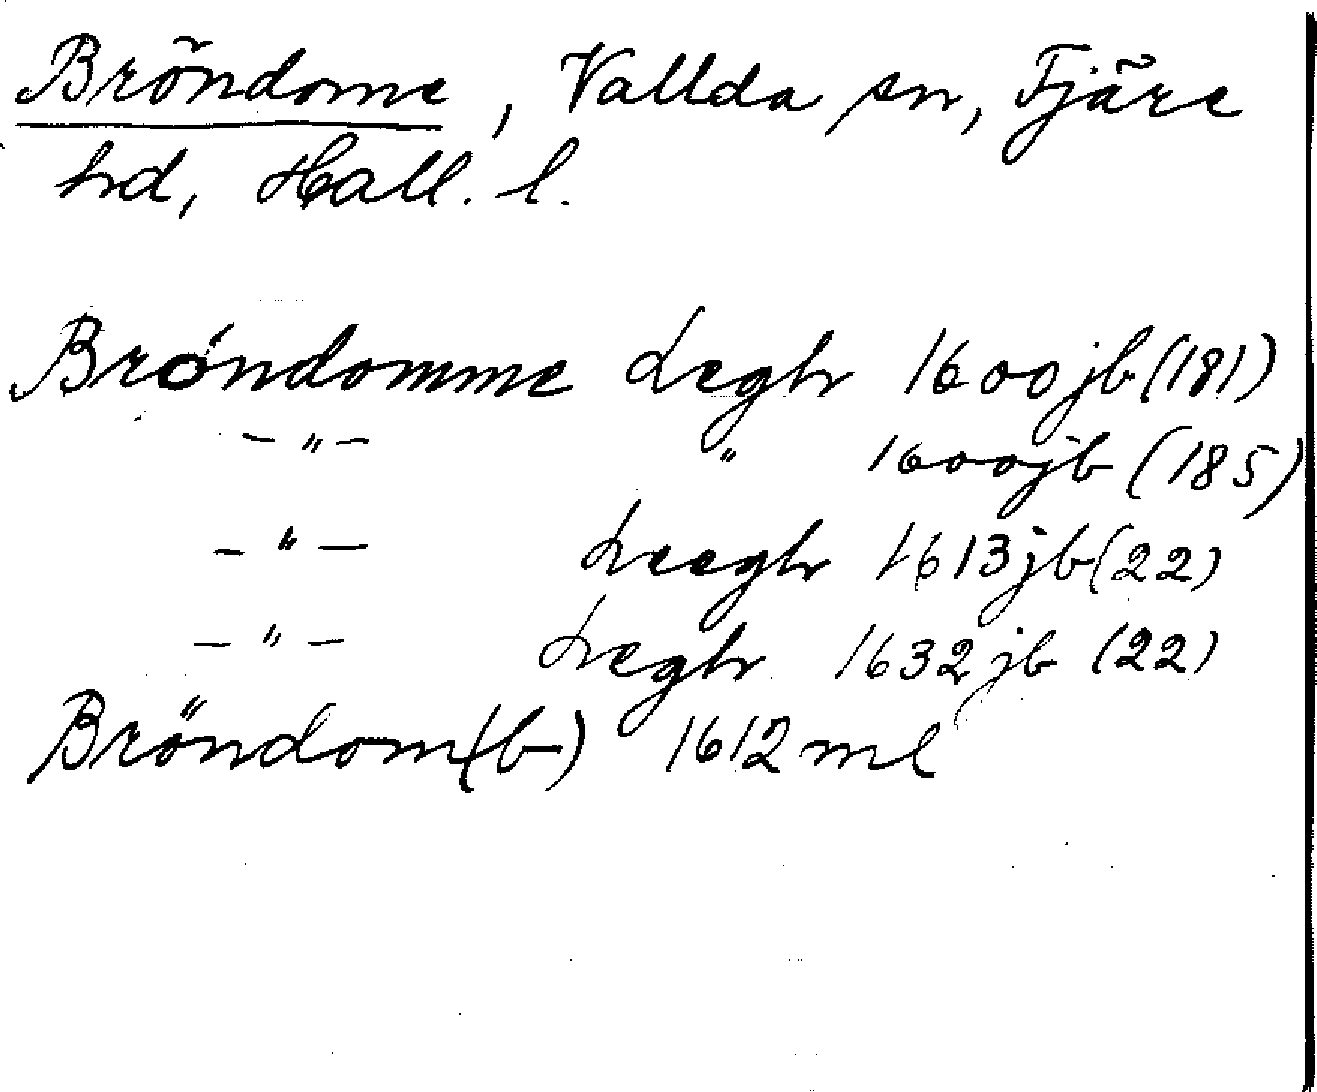 Bröndome, Vallda sn, Fjäre
hd, Hall. l.
Bröndomme Legh 1600 jb (181)
— " — " 1600 jb (185)
— " — Leegh 1613 jb (22)
— " — Legh 1632 jb (22)
Bröndom(b) 1612 ml